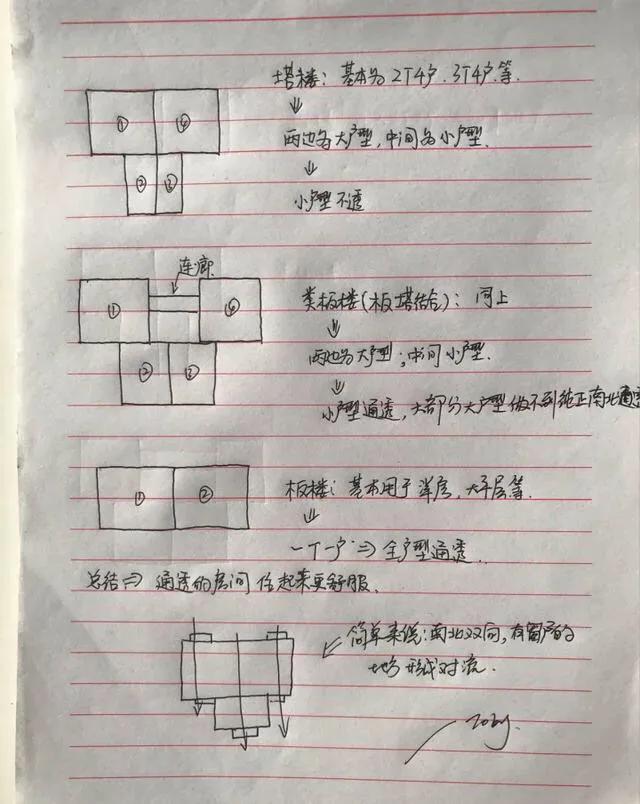 塔楼：基本为2T4户.3T4户.等.
① ④
两边为大户型,中间为小户型.
② ③
小户型不透
连廊
① ④
类板楼(板塔结合)：同上
② ③
两边为大户型；中间小户型.
小户型通透,大部分大户型做不到纯正南北通透
① ②
板楼：基本用于洋房,大平层等.
一T一户⇒全户型通透.
总结⇒通透的房间住起来更舒服.
简单来说：南北双向,有窗户的
地方形成对流.